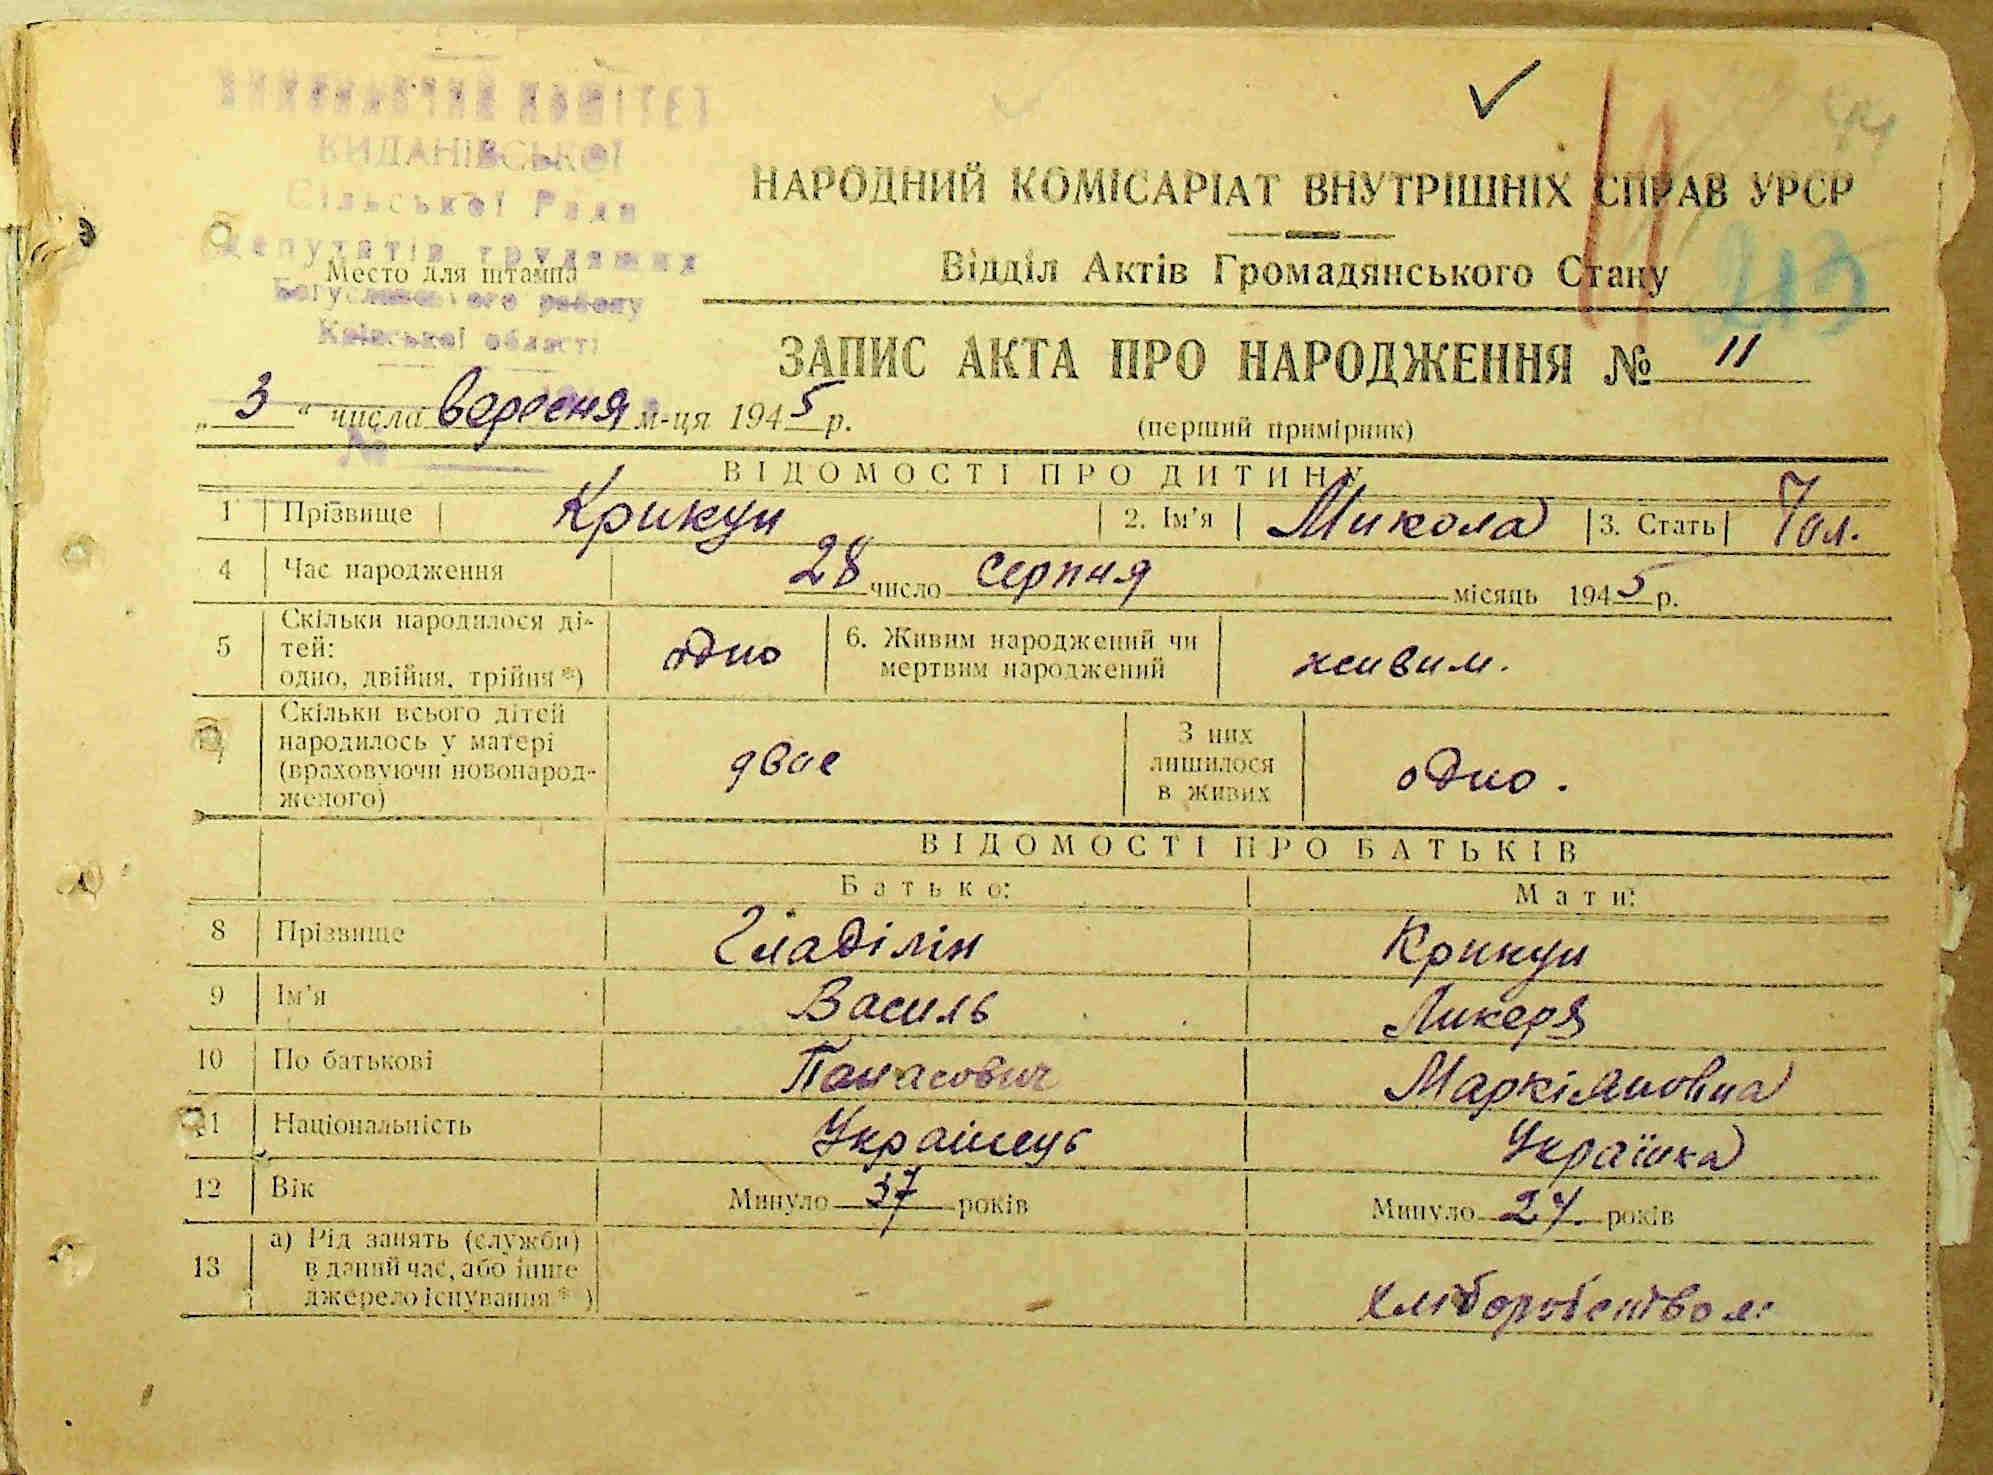 ВИКОНАВЧИЙ КОМІТЕТ
КИДАНІВСЬКОЇ
Сільської Ради
депутатів трудящих
Богуславського району
Київської області
Место для штампа
№
44
НАРОДНИЙ КОМІСАРІАТ ВНУТРІШНІХ СПРАВ УРСР
Відділ Актів Громадянського Стану
11
213
ЗАПИС АКТА ПРО НАРОДЖЕННЯ № 11
„3“ числа вересня м-ця 1945 р.
(перший примірник)
ВІДОМОСТІ ПРО ДИТИНУ
1 Прізвище Крикун 2. Ім'я Микола 3. Стать Чол.
4 Час народження 28 число серпня місяць 1945 р.
5 Скільки народилося ді-
тей:
одно, двійня, трійня *) одно 6. Живим народжений чи
мертвим народжений живим.
7 Скільки всього дітей
народилось у матері
(враховуючи новонарод-
женого) двое З них
лишилося
в живих одно.
ВІДОМОСТІ ПРО БАТЬКІВ
Батько: Мати:
8 Прізвище Гладілін Крикун
9 Ім'я Василь Ликеря
10 По батькові Панасович Маркіяновна
11 Національність Украінець Українка
12 Вік Минуло 37 років Минуло 27 років
13 а) Рід занять (служби)
в даний час, або інше
джерело існування *) - - хліборобством